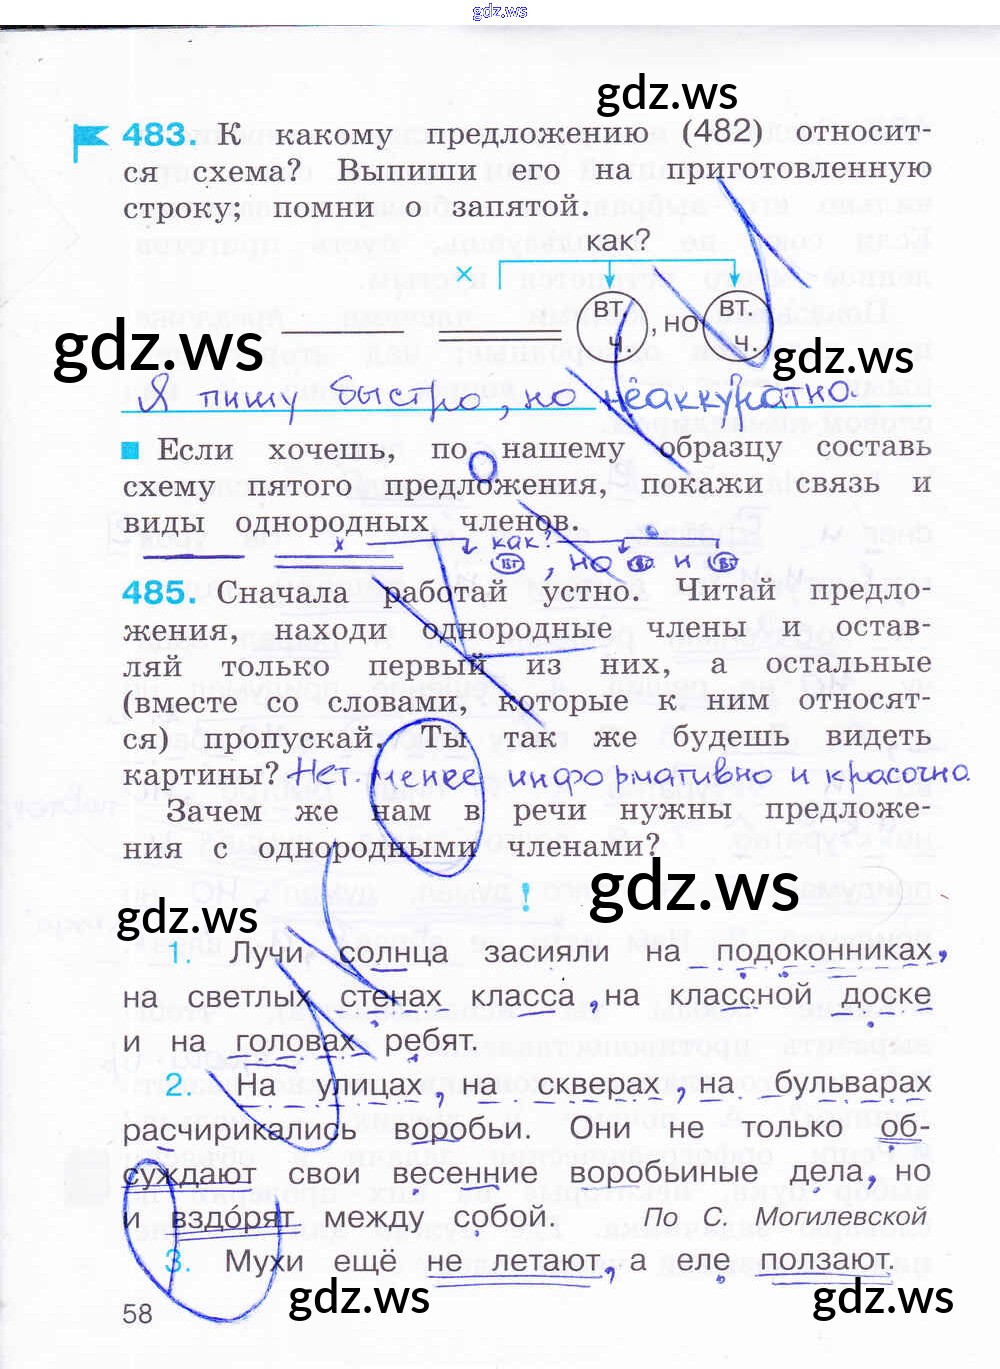 gdz.ws
gdz.ws
483. К какому предложению (482) относит-
ся схема? Выпиши его на приготовленную
строку; помни о запятой.
как?
×
вт. ч. , но вт. ч.
gdz.ws
gdz.ws
Я пишу быстро, но неаккуратно.
Если хочешь, по нашему образцу составь
схему пятого предложения, покажи связь и
виды однородных членов.
× как?
вт , но вт и вт
485. Сначала работай устно. Читай предло-
жения, находи однородные члены и остав-
ляй только первый из них, а остальные
(вместе со словами, которые к ним относят-
ся) пропускай. Ты так же будешь видеть
картины? Нет. менее информативно и красочно
Зачем же нам в речи нужны предложе-
ния с однородными членами?
gdz.ws
gdz.ws
!
1. Лучи солнца засияли на подоконниках,
на светлых стенах класса, на классной доске
и на головах ребят.
2. На улицах, на скверах, на бульварах
расчирикались воробьи. Они не только об-
суждают свои весенние воробьиные дела, но
и вздо́рят между собой. По С. Могилевской
3. Мухи ещё не летают, а еле ползают.
58
gdz.ws
gdz.ws